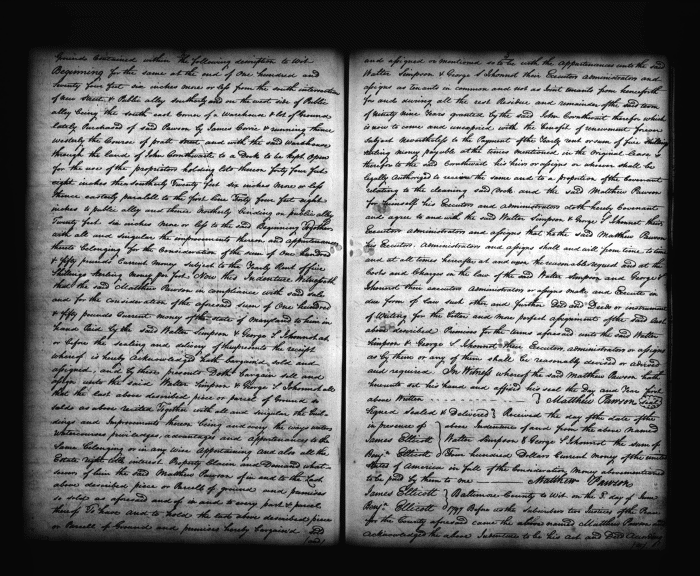 Grounds Contained within the following description to wit
Beginning for the same at the end of One hundred and
Twenty four feet six inches more or less from the south intersection
of one street & Public alley southerly and on the west side of Public
alley being the south east corner of a Warehouse & lot of Ground
lately Purchased of said Pawson by James Corrie & running thence
westerly the Course of pratt street and with the said Warehouse
through the land of John Cornthwait to a Dock to be kept Open
for the use of the proprietors holding lots thereon forty four feet
eight inches thence southerly Twenty feet six inches more or less
thence easterly parallel to the first line Forty four feet eight
inches a public ally and thence Northerly binding on public alley
Twenty feet six inches more or less to the said Beginning Together
with all and singular the improvements thereon and appurtenances
thereto belonging For the Consideration of the sum of One hundred
& fifty pounds Current Money subject to the Yearly Rent of five
Shillings sterling money per foot Now this Indenture Witnesseth
that the said Matthew Pawson in compliance with said sale
and for the consideration of the aforesaid sum of One hundred
& fifty pounds Current money of the state of Maryland to him in
hand paid by the said Walter Simpson & George S Johonnot at
or before the sealing and delivery of these presents the receipt
whereof is hereby Acknowledged hath bargained sold and
assigned, and by these presents Doth bargain sell and
assign unto the said Walter Simpson & George S Johonnot all
that the last above described piece or parcel of Ground so
sold as above recited Together with all and singular the buil
dings and Improvements thereon being and every the ways waters
Watercourses priviledges, advantages and appurtenances to the
same belonging or in any wise Appertaining And also all the
Estate right title interest Property Claim and Demand what
soever of him the said Matthew Pawson of in and to the last
above described piece or Parcell of ground and premises
so sold as aforesaid and of in and to every part & parcel
thereof To have and to hold the last above described piece
or Parcell of Ground and premises hereby bargained sold
and assigned or mentioned so to be with the appurtenances unto the said
Walter Simpson & George S Johonnot their Executors administrators and
assigns as tenants in common and not as joint tenants from henceforth
for and during all the rest Residue and remainder of the said term
of Ninety nine Years granted by the said John Cornthwait therefor which
is now to come and unexpired with the benefit of renewment forever
subject nevertheless to the Payment of the Yearly rent or sum of five shillings
sterling money payable at the times mentioned in the Original Lease
therefor to the said Cornthwait his heirs or assigns or whereon shall be
legally authorized to receive the same and to a proportion of the Covenant
relating to the cleaning said Dock and the said Matthew Pawson
for himself his Executors and administrators doth hereby Covenant
and agree to and with the said Walter Simpson & George S Johonnot their
Executors administrators and assigns that he the said Matthew Pawson
his Executors Administrators and assigns shall and will from time to time
and at all times hereafter at and upon the reasonable request and at the
Costs and Charges in the law of the said Walter Simpson and George S
Johonnot their executors Administrators or assigns make and Execute in
due form of law such other and further Deed and Deeds or instrument
of Writing for the better and more perfect assignment of the said last
above described Premises for the terms aforesaid unto the said Walter
Simpson & George S Johonnot their Executors administrators or assigns
as by them or any of them shall be reasonably devised or advised
and required In Witness whereof the said Matthew Pawson hath
hereunto set his hand and affixed his seal the Day and Year first
above Written Matthew Pawson Seal
Signed Sealed & Delivered Received the day of the date of the
in presence of above Indenture of and from the above Named
James Elliott Walter Simpson & George S Johonnot the sum of
Benjn Elliott Four hundred Dollars Current Money of the united
States of America in full of the Consideration Money abovementioned
to be paid by them to me Matthew Pawson
James Elliott Baltimore County to Wit on the 8th day of June
Benjn Elliott 1797 Before us the Subscribers two Justices of the Peace
for the County aforesaid came the above named Matthew Pawson and
Acknowledged the above Indenture to be his Act and Deed